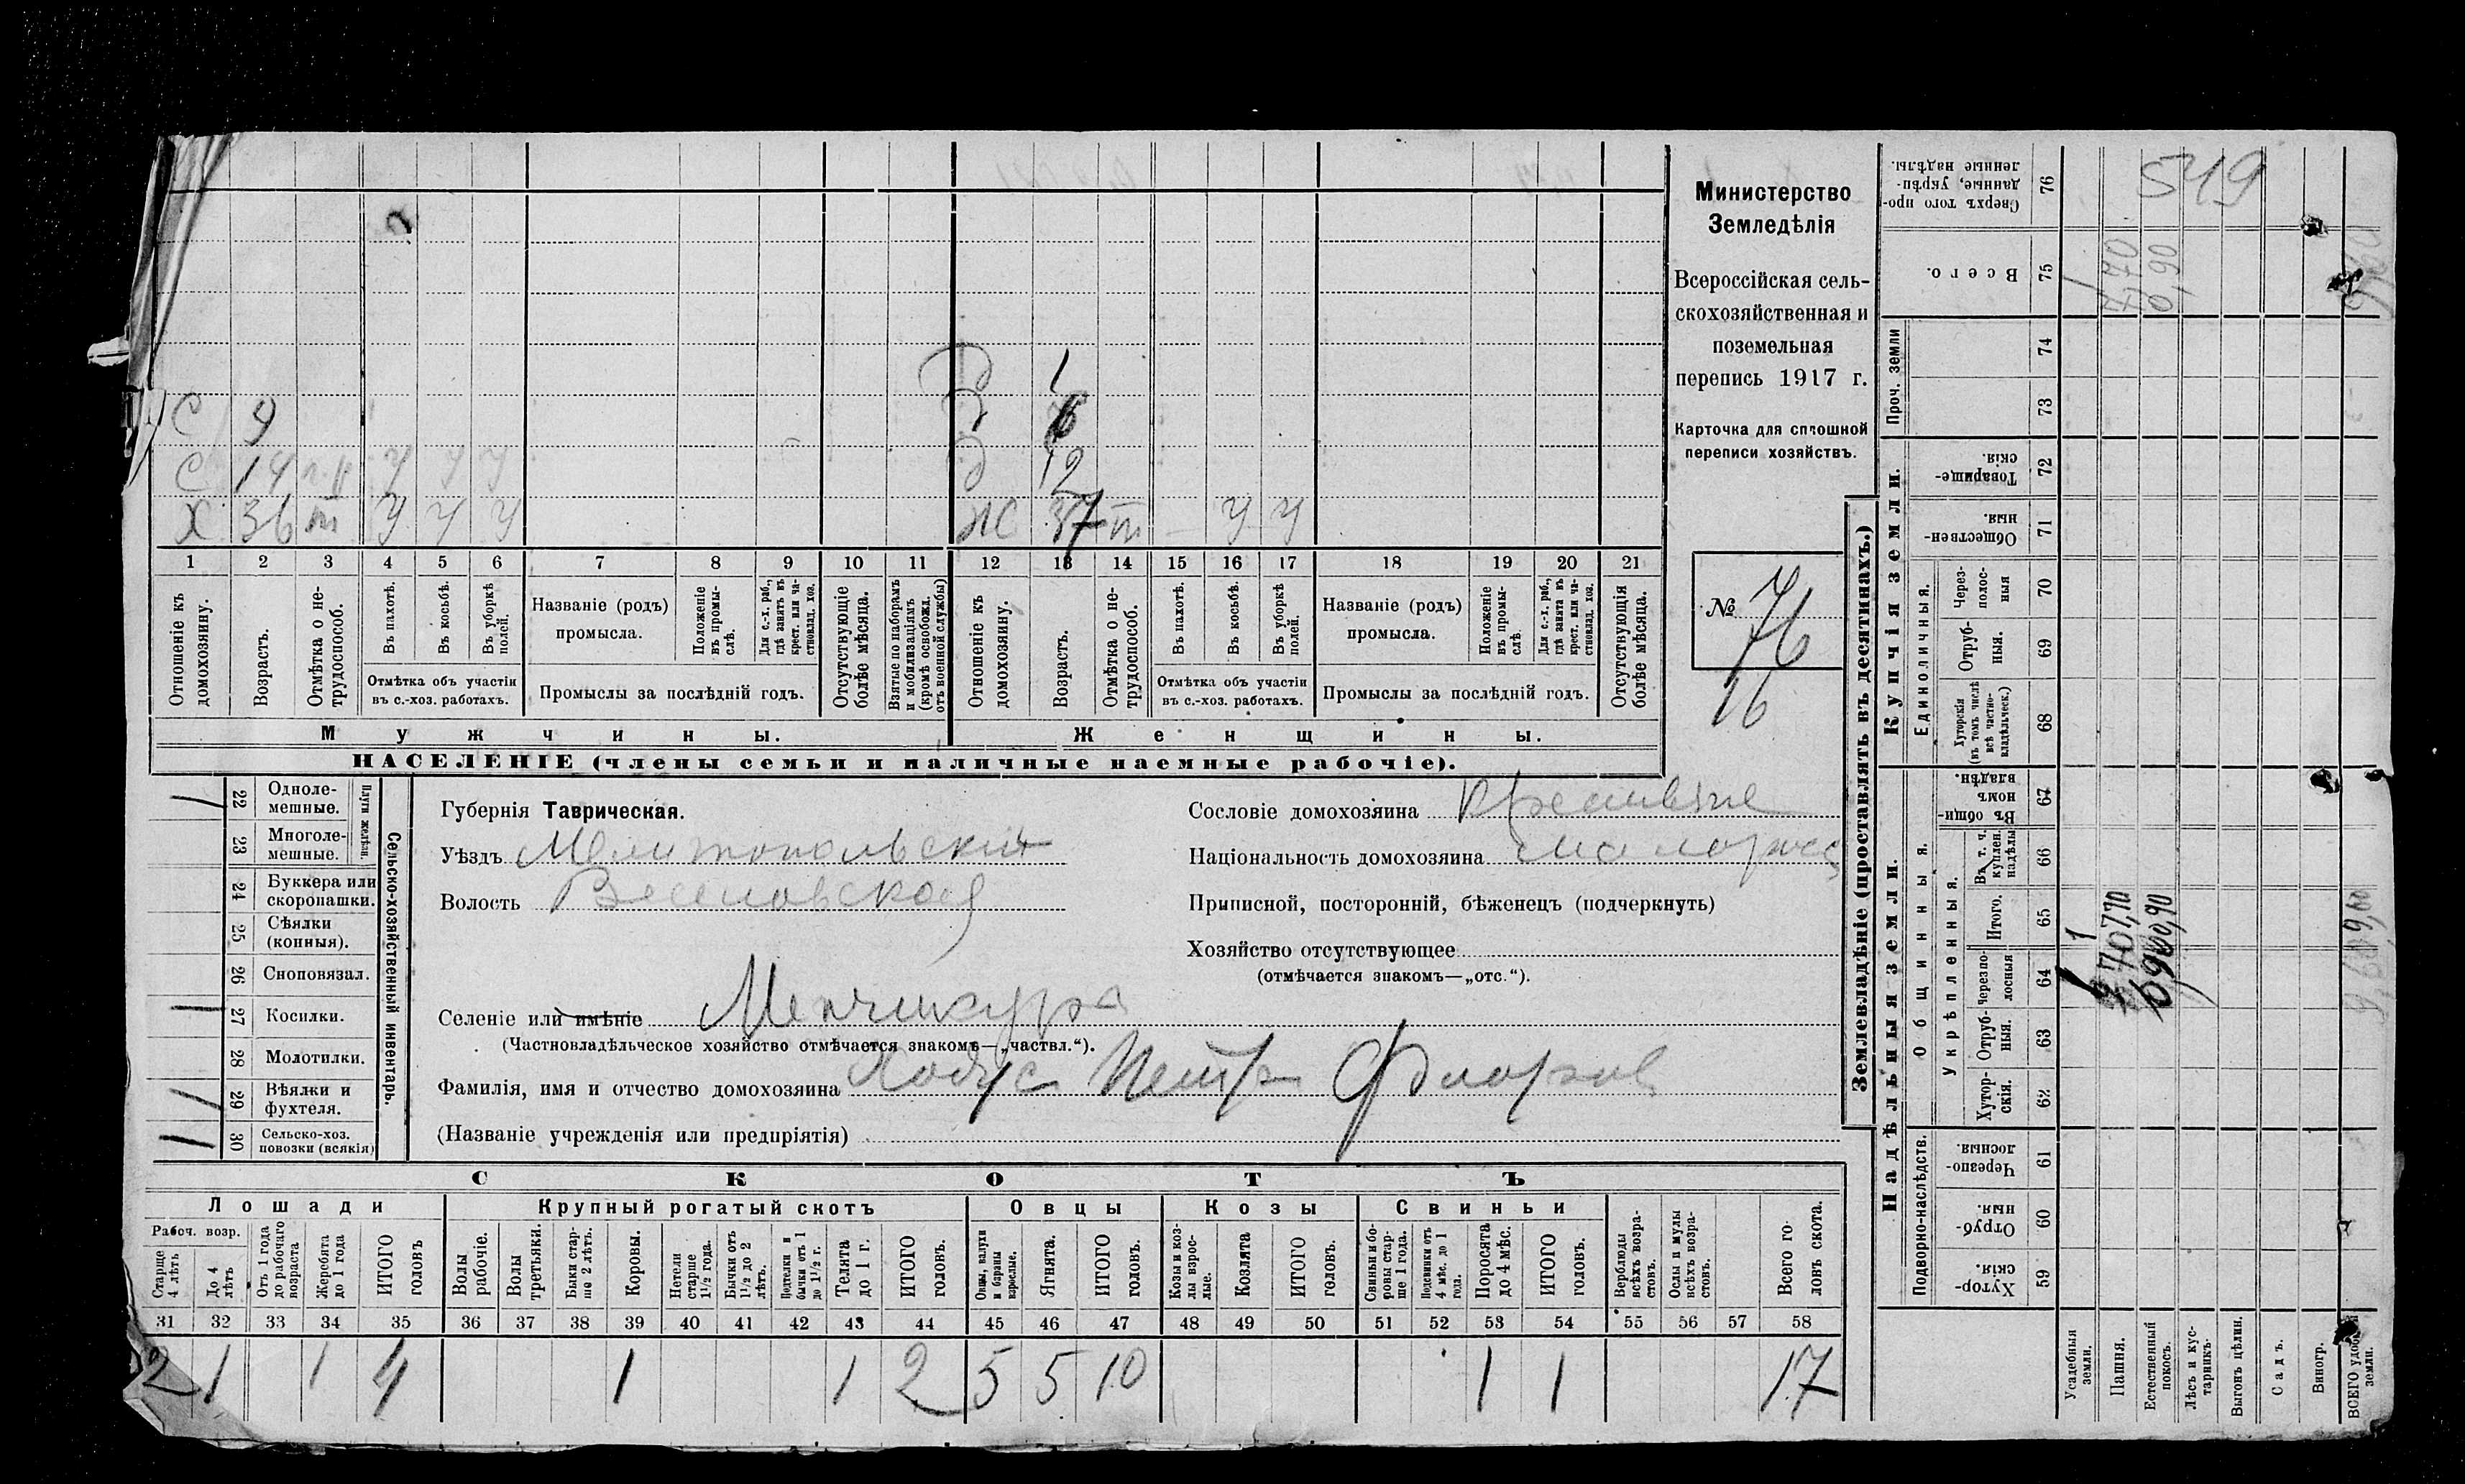 Министерство
Земледѣлія
Всероссійская сель-
скохозяйственная и
поземельная
перепись 1917 г.
Карточка для сплошной
переписи хозяйствъ.
№ 76
16
С 9
С 14 У У У
Х 36 т У У У
Д 1
Д 6
Д 12
Ж 37 т — У У
1 2 3 4 5 6 7 8 9 10 11 12 13 14 15 16 17 18 19 20 21
Отношеніе къ домохозяину.
Возрастъ.
Отмѣтка о не-трудоспособ.
Въ пахотѣ.
Въ косьбѣ.
Въ уборкѣ полей.
Отмѣтка объ участіи въ с.-хоз. работахъ.
Названіе (родъ) промысла.
Положеніе въ промы-слѣ.
Для с.-х. раб., гдѣ занятъ въ крест. или ча-стновлад. хоз.
Промыслы за послѣдній годъ.
Отсутствующіе болѣе мѣсяца.
Взятые по наборамъ и мобилизаціямъ (кромѣ освобожд. отъ военной службы)
Отношеніе къ домохозяину.
Возрастъ.
Отмѣтка о не-трудоспособ.
Въ пахотѣ.
Въ косьбѣ.
Въ уборкѣ полей.
Отмѣтка объ участіи въ с.-хоз. работахъ.
Названіе (родъ) промысла.
Положеніе въ промы-слѣ.
Для с.-х. раб., гдѣ занята въ крест. или ча-стновлад. хоз.
Промыслы за послѣдній годъ.
Отсутствующія болѣе мѣсяца.
Мужчины. Женщины.
НАСЕЛЕНІЕ (члены семьи и наличные наемные рабочіе).
Сельско-хозяйственный инвентарь.
Плуги желѣзн.
1 22 Однолемешные.
23 Многоле-мешные.
24 Буккера или скоропашки.
25 Сѣялки (конныя).
26 Сноповязал.
1 27 Косилки.
28 Молотилки.
1 29 Вѣялки и фухтеля.
1 30 Сельско-хоз. повозки (всякія)
Губернія Таврическая.
Уѣздъ Мелитопольскій
Волость Веселовская
Селеніе или имѣніе Менчикуръ
(Частновладѣльческое хозяйство отмѣчается знакомъ—„частвл.“).
Фамилія, имя и отчество домохозяина Ходус Петръ Флоров
(Названіе учрежденія или предпріятія)
Сословіе домохозяина
Національность домохозяина малоросс
Приписной, посторонній, бѣженецъ (подчеркнуть)
Хозяйство отсутствующее
(отмѣчается знакомъ—„отс.“).
СКОТЪ
Лошади Крупный рогатый скотъ Овцы Козы Свиньи
Рабоч. возр.
Старше 4 лѣтъ
До 4 лѣтъ
Отъ 1 года до рабочаго возраста
Жеребята до 1 года
ИТОГО головъ
Волы рабочіе.
Волы третьяки.
Быки стар-ше 2 лѣтъ.
Коровы.
Нетели старше 1½ года.
Бычки отъ 1½ до 2 лѣтъ.
Подтелки и бычки отъ 1 до 1½ г.
Телята до 1 г.
ИТОГО головъ.
Овцы, валухи и бараны взрослые.
Ягнята.
ИТОГО головъ.
Козы и коз-лы взрос-лые.
Козлята
ИТОГО головъ.
Свиньи и бо-ровы стар-ше 1 года.
Подсвинки отъ 4 мѣс. до 1 года.
Поросята до 4 мѣс.
ИТОГО головъ.
Верблюды всѣхъ возра-стовъ.
Ослы и мулы всѣхъ возра-стовъ.
Всего го-ловъ скота.
31 32 33 34 35 36 37 38 39 40 41 42 43 44 45 46 47 48 49 50 51 52 53 54 55 56 57 58
2 1 1 4 1 1 2 5 5 10 1 1 17
Землевладѣніе (проставлять въ десятинахъ.)
Надѣльныя земли. Купчія земли. Проч. земли
Подворно-наслѣдств.
Общинныя.
Укрѣпленныя.
Единоличныя.
Хутор-скія. 59
Отруб-ныя. 60
Черезпо-лосныя 61
Хутор-скія. 62
Отруб-ныя. 63
Черезпо-лосныя 64
Итого. 65
Въ т. ч. куплен. надѣлы 66
Въ общин-номъ владѣн. 67
Хуторскія (въ томъ числѣ всѣ частно-владѣльческ.) 68
Отруб-ныя. 69
Через-полос-ныя 70
Обществен-ныя. 71
Товарище-скія. 72
73
74
Всего. 75
Сверхъ того про-данные, укрѣп-ленные надѣлы. 76
Усадебныя земли.
Пашня.
Естественный покосъ.
Лѣсъ и кус-тарникъ.
Выгонъ цѣлин.
Садъ.
Виногр.
ВСЕГО удобной земли.
1
7,70
0,90
549